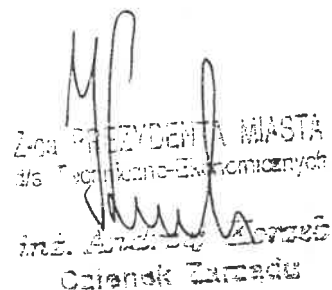 Z-ca PREZYDENTA MIASTA
d/s Techniczno-Ekonomicznych
inż. Andrzej
Członek Zarządu